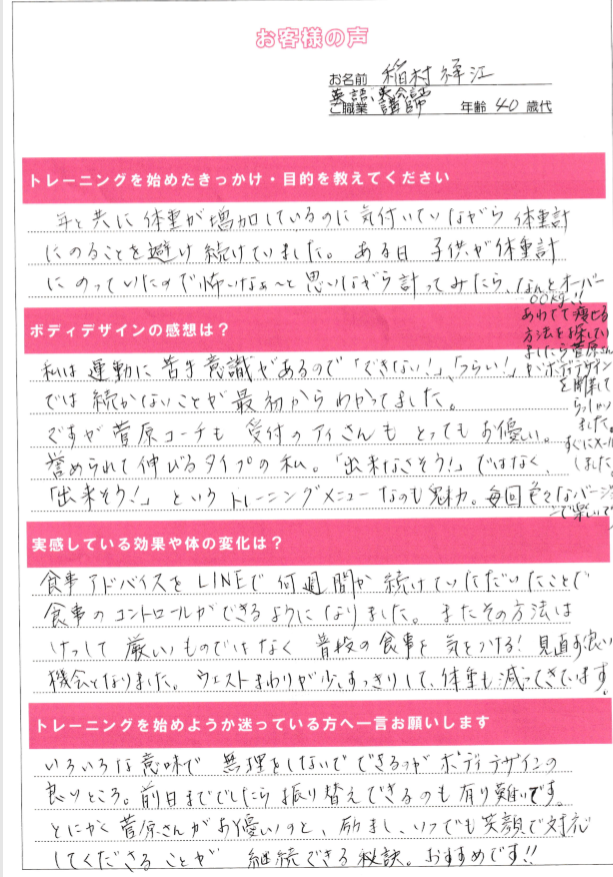 お客様の声
お名前 稲村 祥江
英語、英会話
ご職業 講師 年齢 40 歳代
トレーニングを始めたきっかけ・目的を教えてください
年と共に体重が増加しているのに気付いていながら体重計
にのることを避け続けていました。ある日 子供が体重計
にのっていたので怖いなぁ〜と思いながら計ってみたら、なんとオーバー
00kg!!
あわてて痩せる
方法を探してい
ましたら菅原さん
がボディデザイン
を開業して
らっしゃい
ました。
すぐにメール
しました。
ボディデザインの感想は？
私は運動に苦手意識があるので「できない！」、「つらい！」
では続かないことが最初からわかってました。
ですが菅原コーチも受付のアイさんもとってもお優しい。
誉められて伸びるタイプの私。「出来なさそう!」ではなく、
「出来そう!」というトレーニングメニューなのも魅力。毎回色々なバージョ
ンで楽しいです
実感している効果や体の変化は？
食事アドバイスをLINEで何週間か続けていただいたことで
食事のコントロールができるようになりました。またその方法は
けっして厳しいものではなく普段の食事を気をつける！見直す良い
機会となりました。ウェストまわりが少しすっきりして、体重も減ってきています。
トレーニングを始めようか迷っている方へ一言お願いします
いろいろな意味で無理をしないでできるのがボディデザインの
良いところ。前日まででしたら振り替えできるのも有り難いです。
とにかく菅原さんがお優しいのと、励まし、いつでも笑顔で対応
してくださることが継続できる秘訣。おすすめです!!